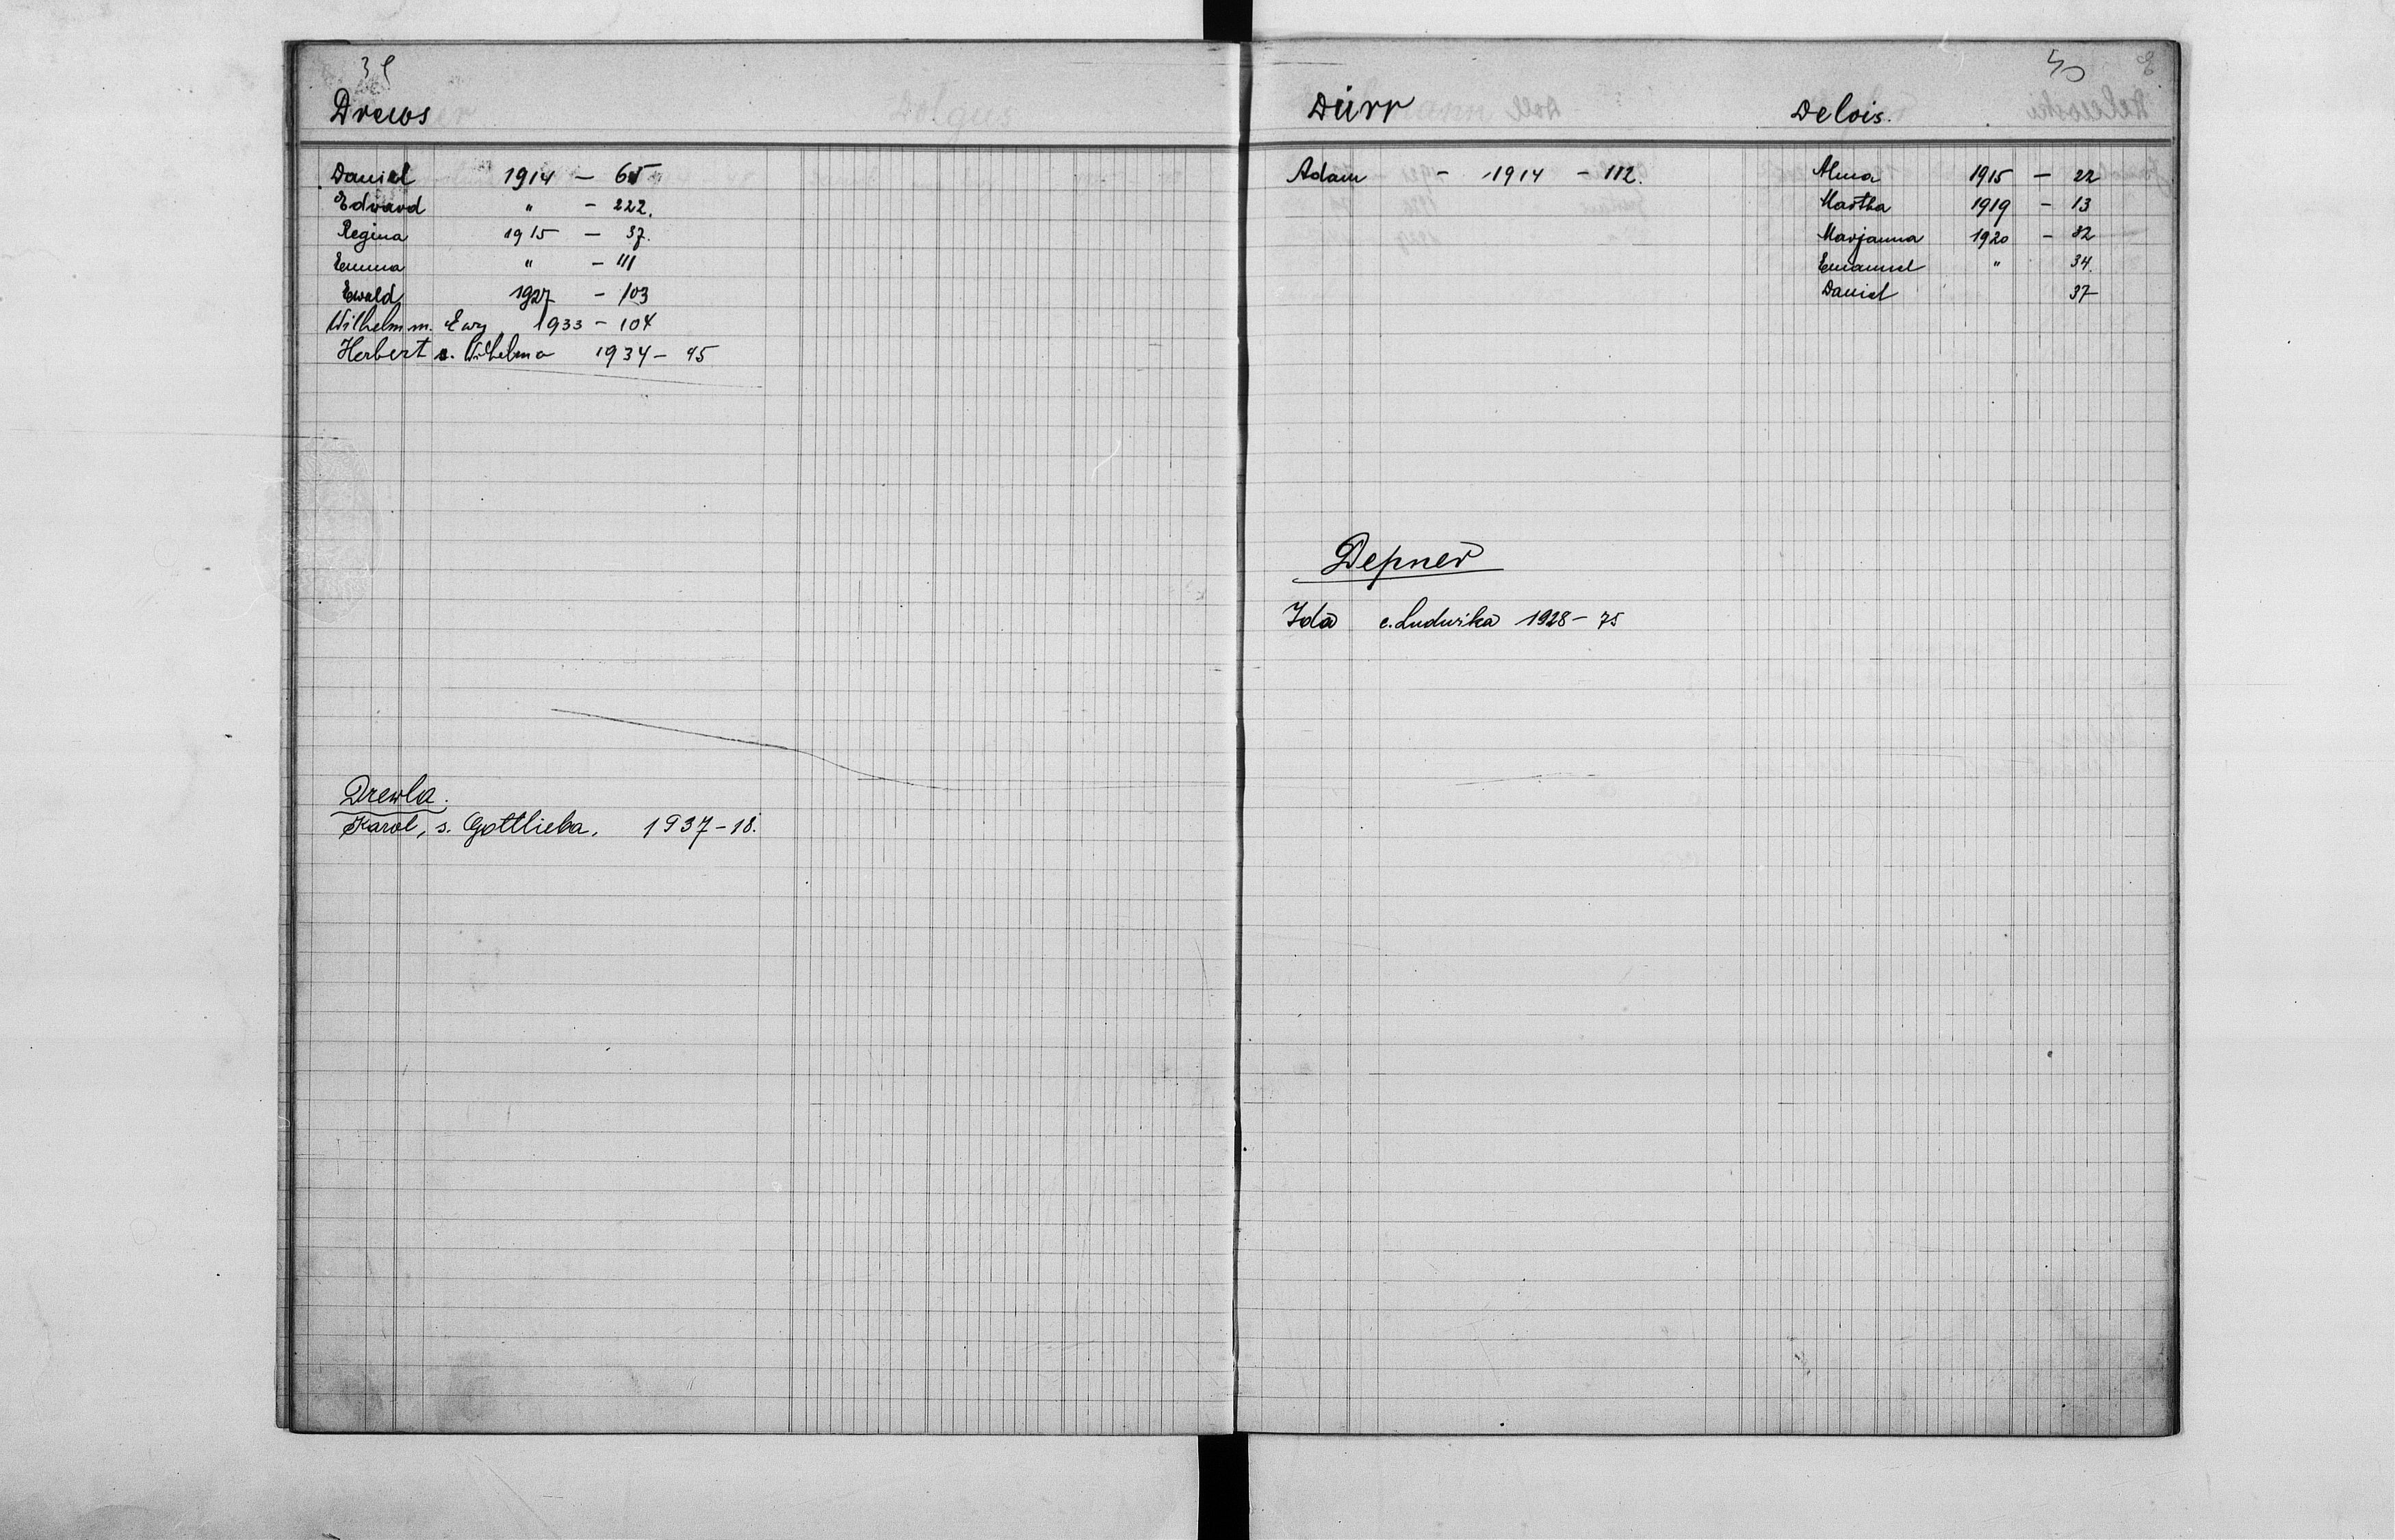 39
Drews
Daniel 1914 – 65
Edward " – 222.
Regina 1915 – 37.
Emma " – 111
Ewald 1927 – 103
Wilhelm m. Ewy 1933 – 104
Herbert s. Wilhelma 1934 – 45
Drewla.
Karol, s. Gottlieba. 1937 – 18.
40
Dürr
Adam – 1914 – 112.
Depner
Ida c. Ludwika 1928 – 75
Delois.
Alma 1915 – 22
Martha 1919 – 13
Marjanna 1920 – 32
Emanuel " 34.
Daniel 37